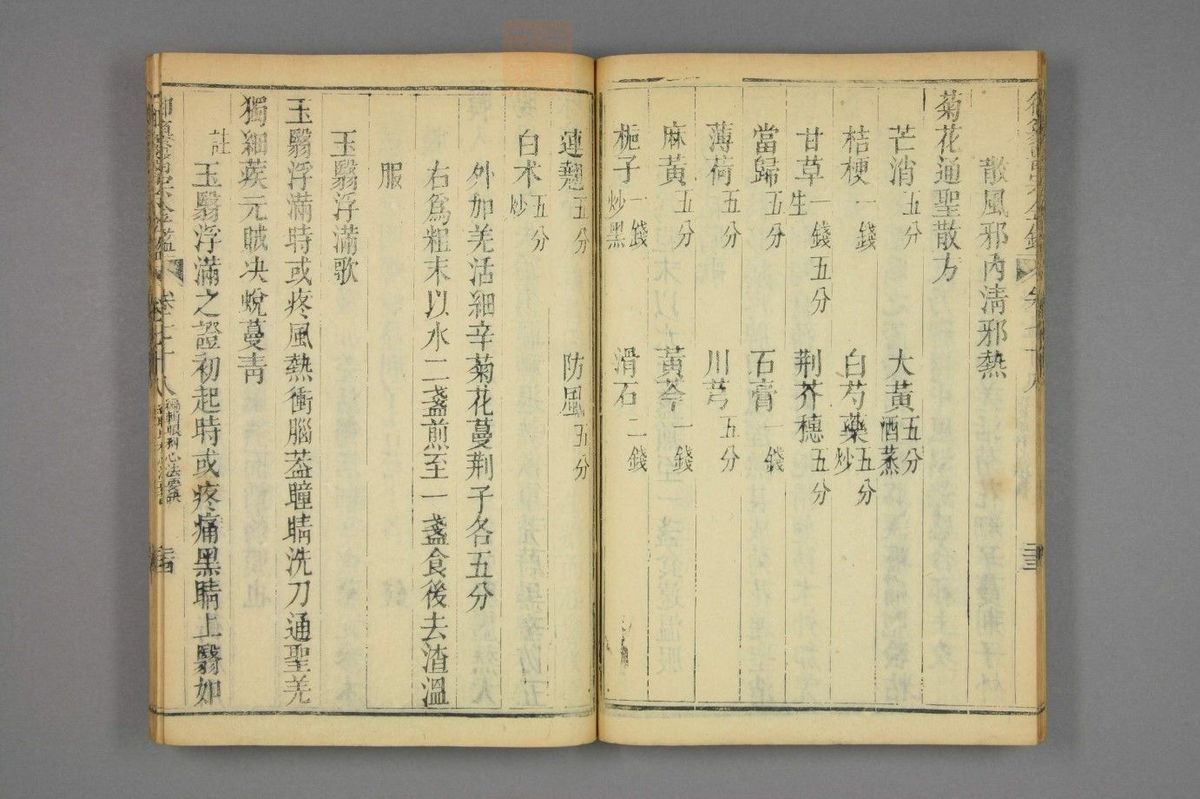 散風邪內淸邪熱
菊花通聖散方
芒消五分 大黃五分酒蒸
桔梗一錢 白芍藥五分炒
甘草一錢五分生 荆芥穗五分
當歸五分 石膏一錢
薄荷五分 川芎五分
麻黃五分 黃芩一錢
梔子一錢炒黑 滑石二錢
連翹五分 防風五分
白术五分炒
外加羌活細辛菊花蔓荆子各五分
右爲粗末以水二盞煎至一盞食後去渣溫
服
玉翳浮滿歌
玉翳浮滿時或疼風熱衝腦葢瞳睛洗刀通聖羌
獨細蒺元賊决蛻蔓靑
註玉翳浮滿之證初起時或疼痛黑睛上翳如
御纂醫宗金鑑 卷七十八 編輯眼科心法要訣